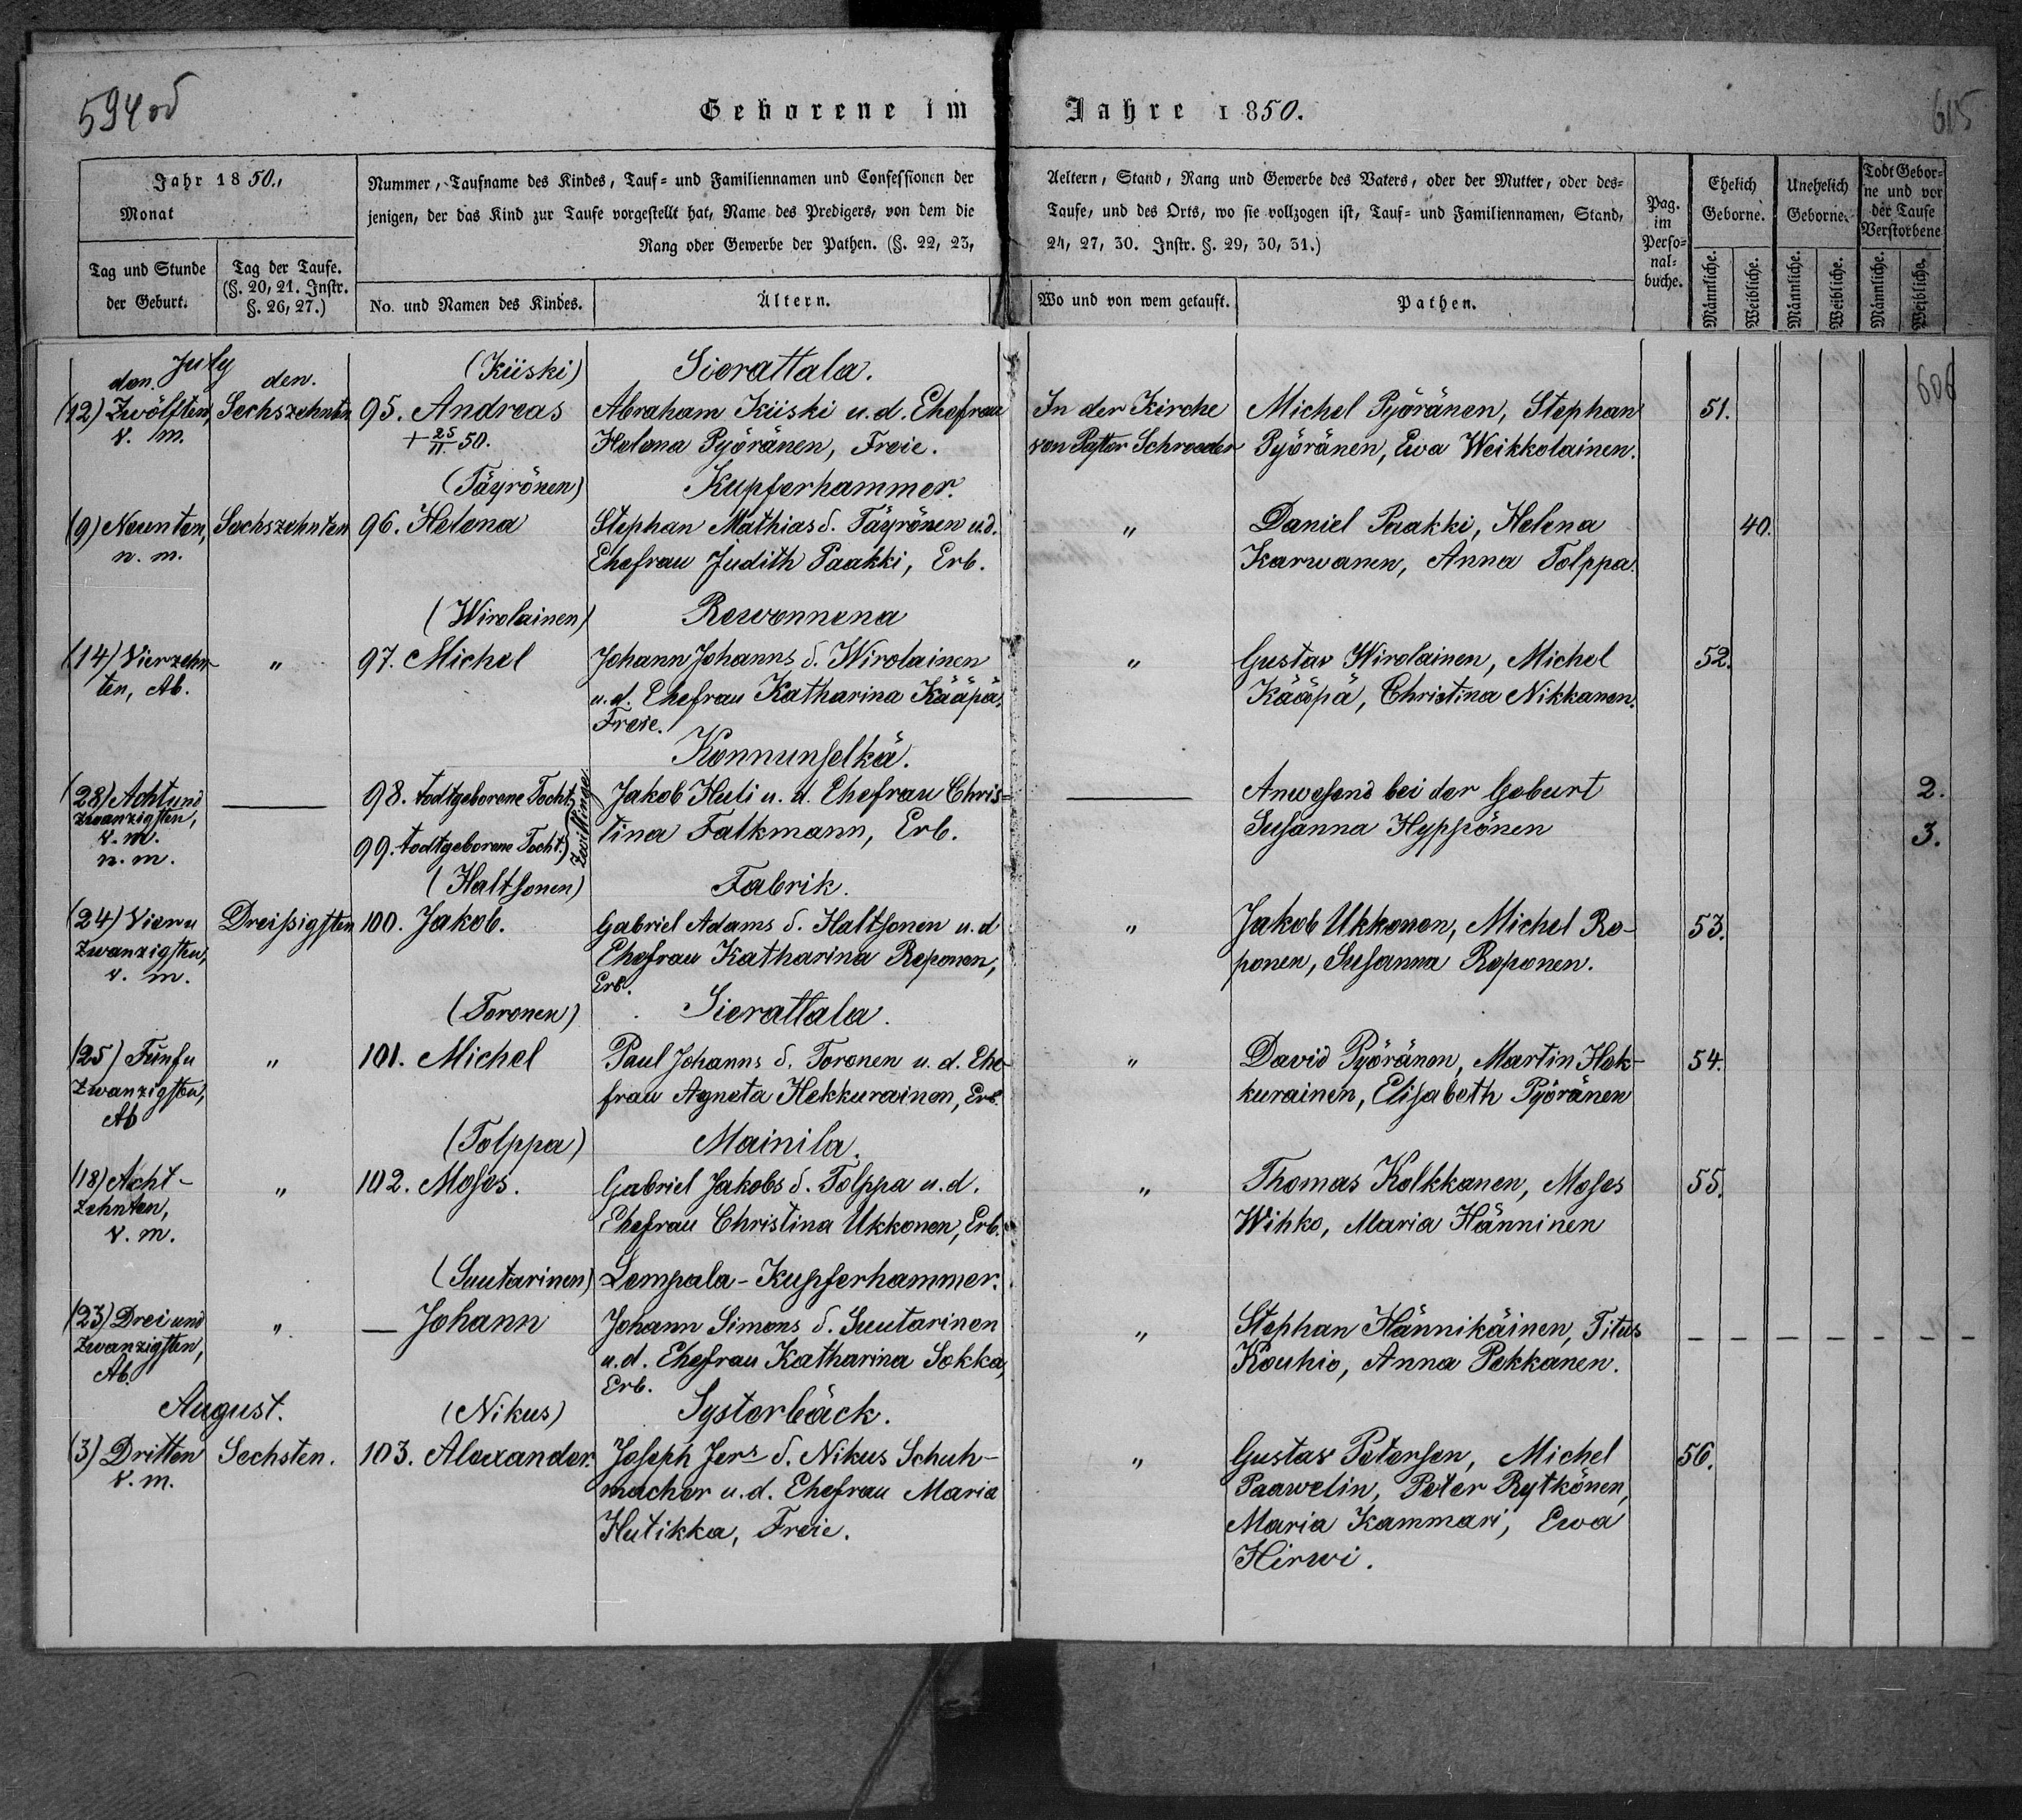 594 od
Geborene im Jahre 1850.
605
Jahr 1850.,
Monat
Tag und Stunde der Geburt.
Tag der Taufe. (§. 20, 21. Instr. §. 26, 27.)
Nummer, Taufname des Kindes, Tauf= und Familiennamen und Confessionen der Aeltern, Stand, Rang und Gewerbe des Vaters, oder der Mutter, oder des=
jenigen, der das Kind zur Taufe vorgestellt hat, Name des Predigers, von dem die Taufe, und des Orts, wo sie vollzogen ist, Tauf= und Familiennamen, Stand,
Rang oder Gewerbe der Pathen. (§. 22, 23, 24, 27, 30. Instr. §. 29, 30, 31.)
No. und Namen des Kindes.
Ältern.
Wo und von wem getauft.
Pathen.
Pag. im Perso=nal=buche.
Ehelich Geborne.
Unehelich Geborne.
Todt Gebor=ne und vor der Taufe Verstorbene
Männliche. Weibliche. Männliche. Weibliche. Männliche. Weibliche.
July
den. den. (Kiiski) Sierattala.
606
(12) Zwölften, Sechszehnten 95. Andreas Abraham Kiiski u. d. Ehefrau In der Kirche Michel Pyöränen, Stephan 51.
v. m. + 25/11 50. Helena Pyöränen, Freie. von Pastor Schroeder Pyöränen, Ewa Weikkolainen.
(Täyrönen) Kupferhammer.
(9) Neunten, Sechszehnten 96. Helena Stephan Mathias S. Täyrönen u.d. " Daniel Paakki, Helena 40.
n. m. Ehefrau Judith Paakki, Erb. Karwanen, Anna Tolppa.
(Wirolainen) Rewonnena
(14) Vierzehn- " 97. Michel Johann Johanns S. Wirolainen " Gustav Wirolainen, Michel 52.
ten, Ab. u. d. Ehefrau Katharina Kääpä, Kääpä, Christina Nikkanen.
Freie.
Konnunselkä.
(28) Achtund — 98. todtgeborene Tocht. Jakob Huli u. d. Ehefrau Chris= — Anwesend bei der Geburt 2.
zwanzigsten, Zwillinge
v. m. 99. todtgeborene Tocht. tina Falkmann, Erb. Susanna Hyppönen 3.
n. m.
(Haltsonen) Fabrik.
(24) Vieru Dreissigsten 100. Jakob. Gabriel Adams S. Haltsonen u. d " Jakob Ukkonen, Michel Re- 53.
zwanzigsten, Ehefrau Katharina Reponen, ponen, Susanna Reponen.
v. m. Erb.
(Toronen) Sierattala.
(25) Fünfu " 101. Michel Paul Johanns S. Toronen u. d. Ehe- " David Pyöränen, Martin Hek- 54.
zwanzigsten, frau Agneta Hekkurainen, Erb. kurainen, Elisabeth Pyöränen
Ab
(Tolppa) Mainila.
(18) Acht- " 102. Moses. Gabriel Jakobs S. Tolppa u. d. " Thomas Kolkkanen, Moses 55.
zehnten, Ehefrau Christina Ukkonen, Erb. Wihko, Maria Hänninen
v. m.
(Suutarinen) Lempala-Kupferhammer.
(23) Dreiund " — Johann Johann Simons S. Suutarinen " Stephan Hännikäinen, Titus - - - - - - -
zwanzigsten, u. d. Ehefrau Katharina Sokka, Kouhio, Anna Pekkanen.
Ab. Erb.
August. (Nikus) Systerbäck.
(3) Dritten Sechsten. 103. Alexander. Joseph Jers S. Nikus Schuh- " Gustav Petersen, Michel 56.
v. m. macher u. d. Ehefrau Maria Paawelin, Peter Rytkönen,
Hutikka, Freie. Maria Kammari, Ewa
Hirwi.